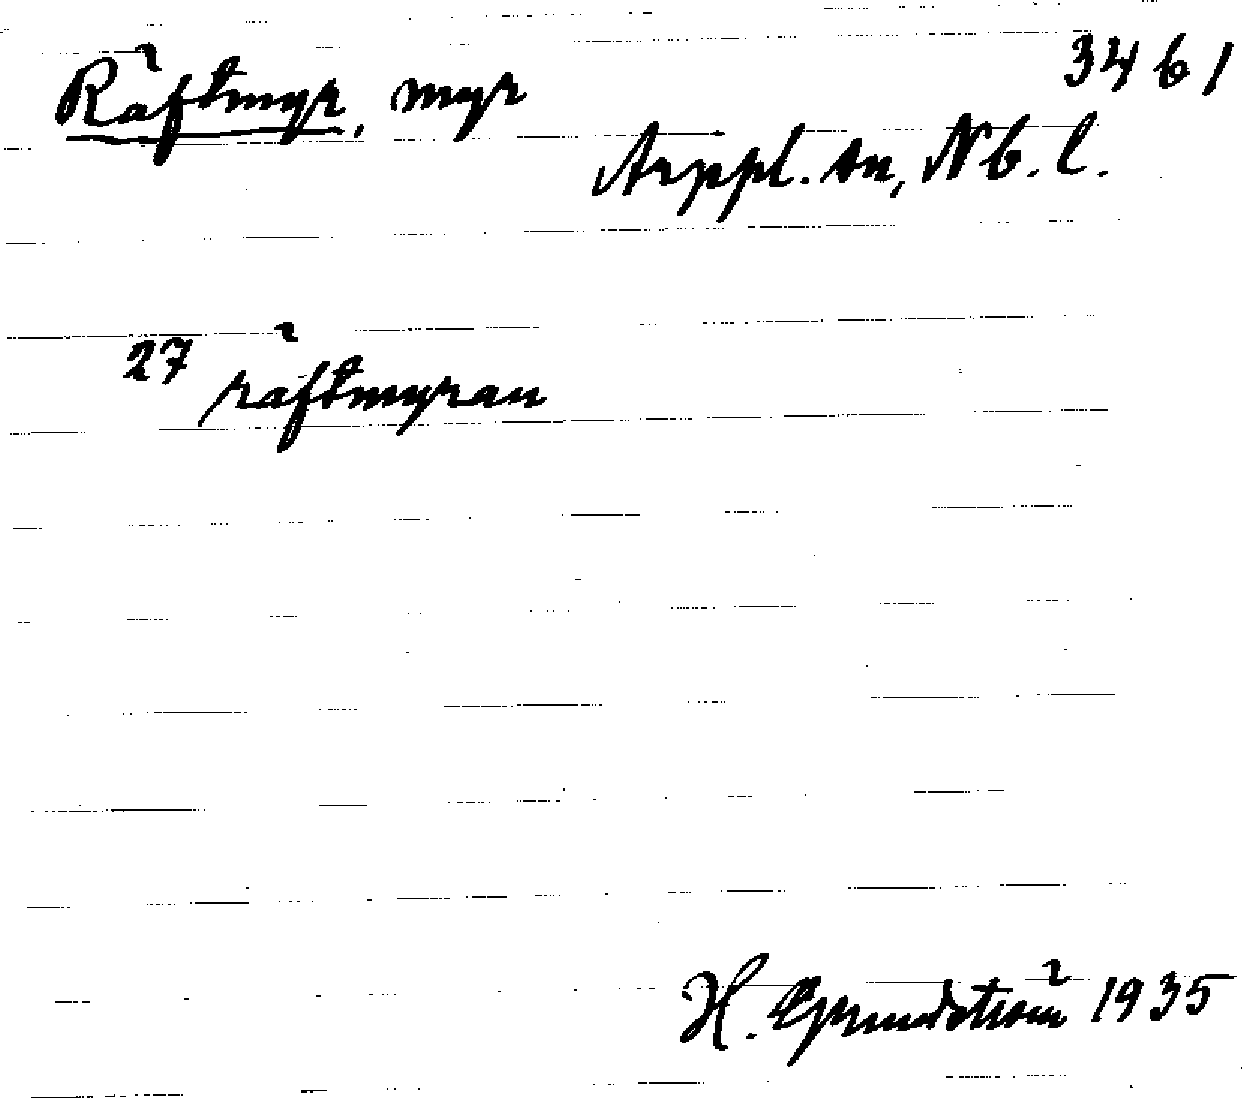 Räftmyr, myr 3461
Arppl. sn, Nb. l.
27 räftmyran
H. Grundström 1935